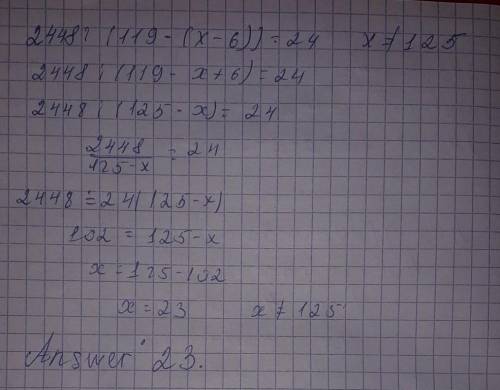 2448 : (119 - (x - 6)) = 24 x ≠ 125
2448 : (119 - x + 6) = 24
2448 : (125 - x) = 24
2448/125-x = 24
2448 = 24(125 - x)
102 = 125 - x
x = 125 - 102
x = 23 x ≠ 125
Answer: 23.